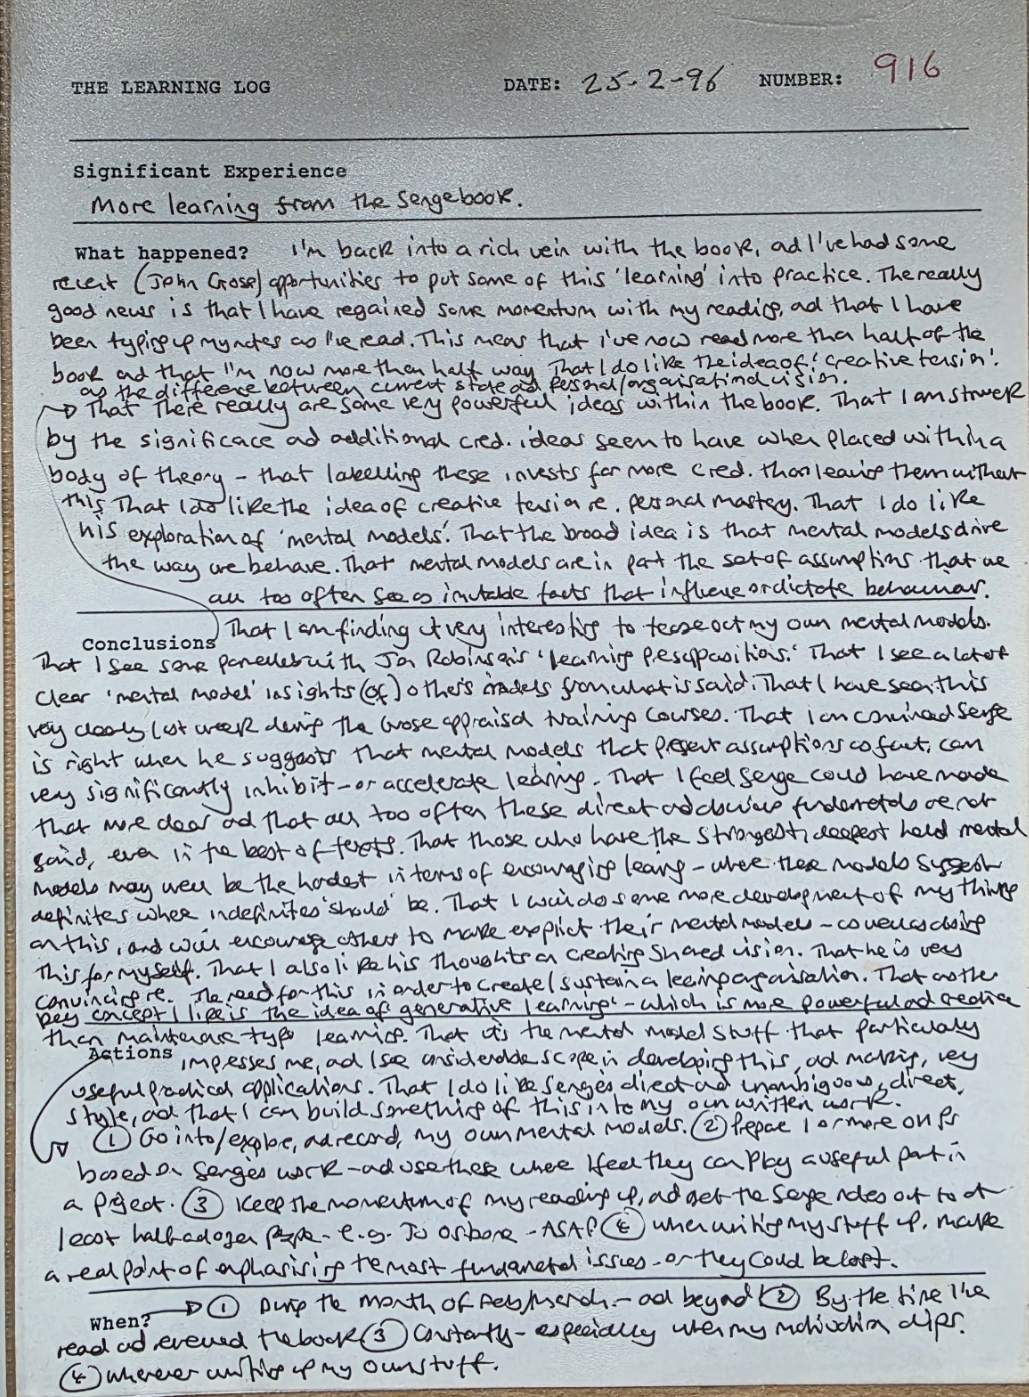 THE LEARNING LOG DATE: 25-2-96 NUMBER: 916
Significant Experience
More learning from the Senge book.
What happened? I'm back into a rich vein with the book, ad I've had some
recent (John Crose) opportunities to put some of this 'learning' into practice. The really
good news is that I have regained some momentum with my readig, ad that I have
been typing up my notes as I've read. This means that i've now read more than half of the
book ad that I'm now more than half way. That I do like the idea of 'creative tension'.
as the difference between current state ad personal/organisational vision.
That there really are some very powerful ideas within the book. That I am struck
by the significace ad additional cred. ideas seem to have when placed within a
body of theory - that labelling these invests far more cred. than leaving them without
this. That I do like the idea of creative tension re. personal mastery. That I do like
his exploration of 'mental models'. That the broad idea is that mental models drive
the way we behave. That mental models are in part the set of assumptions that we
all too often see as imutable facts that influence or dictate behaviour.
Conclusions That I am finding it very interesting to tease out my own mental models.
That I see some parallels with Jon Robinson's 'learning presuppositions.' That I see a lot of
clear 'mental model' insights (of) others models from what is said. That I have seen this
very clearly last week during the Crose appraisal training courses. That I am convinced Senge
is right when he suggests that mental models that present assumptions as fact, can
very significantly inhibit - or accelerate learning. That I feel Senge could have made
that more clear ad that all too often these direct ad obvious fundamentals are not
said, even in the best of texts. That those who have the strongest, deepest held mental
models may well be the hardest in terms of encouraging learning - where these models suggest
definites where indefinites 'should' be. That I will do some more development of my things
on this, and will encourage others to make explicit their mental models - as well as doing
this for myself. That I also like his thoughts on creating shared vision. That he is very
convincing re. the need for this in order to create/sustain a learning organisation. That another
key concept I like is the idea of 'generative learning' - which is more powerful ad creative
than maintenance type learning. That it's the mental model stuff that particularly
Actions impresses me, ad I see considerable scope in developing this, ad making, very
useful practical applications. That I do like Senges direct ad unambiguous, direct,
style, ad that I can build something of this into my own written work.
① Go into/explore, ad record, my own mental models. ② Prepare 1 or more
based on Senges work - ad use these where I feel they can play a useful part in
a project. ③ Keep the momentum of my reading up, ad get the Senge notes out to at
least half a dozen people - e.g. Jo Osborne - ASAP ④ when writing my stuff up, make
a real point of emphasising the most fundamental issues - or they could be lost.
When? ① During the month of Feb/March - ad beyond ② By the time I've
read ad reviewed the book ③ Constantly - especially when my motivation dips.
④ wherever writing up my own stuff.